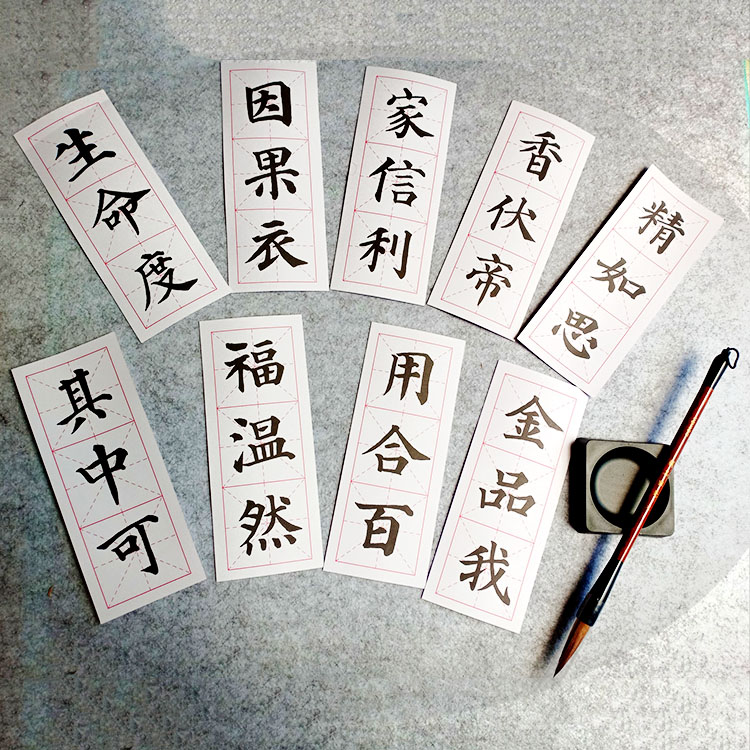 生命度
因果衣
家信利
香伏帝
精如思
其中可
福温然
用合百
金品我